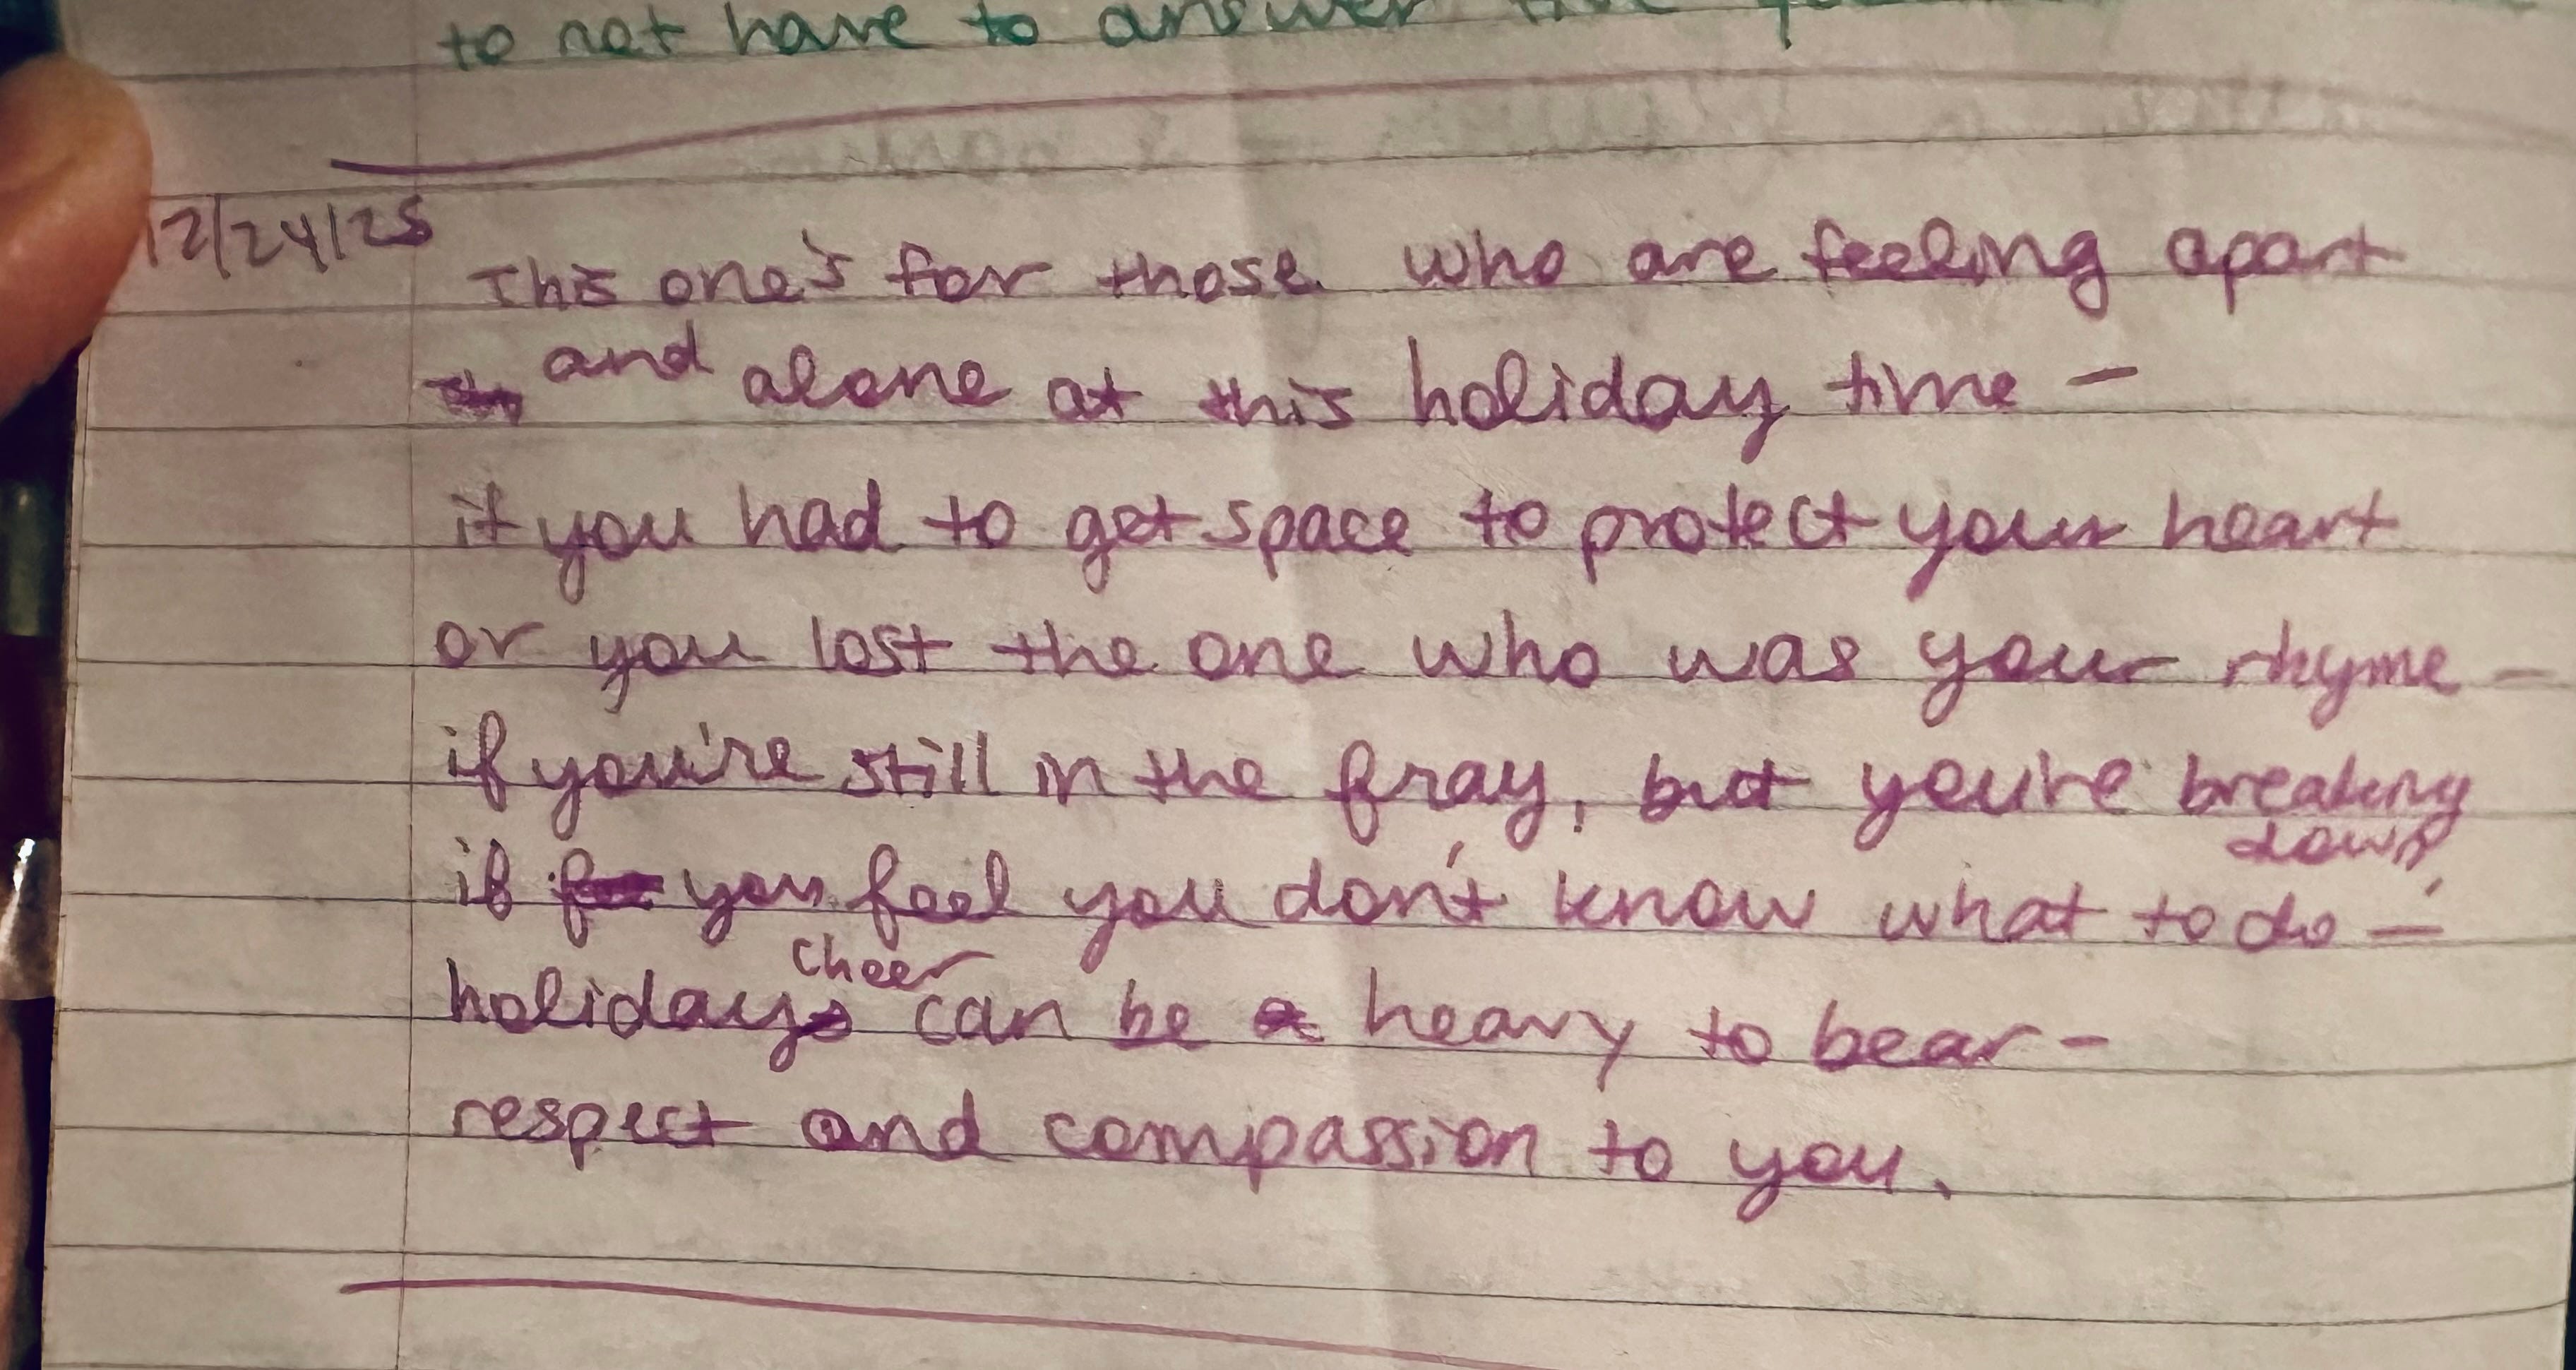 to not have to answer the
12/24/25
This one's for those who are feeling apart
and alone at this holiday time -
if you had to get space to protect your heart
or you lost the one who was your rhyme -
if you're still in the fray, but you're breaking
down,
if you feel you don't know what to do -
cheer
holiday can be heavy to bear -
respect and compassion to you.